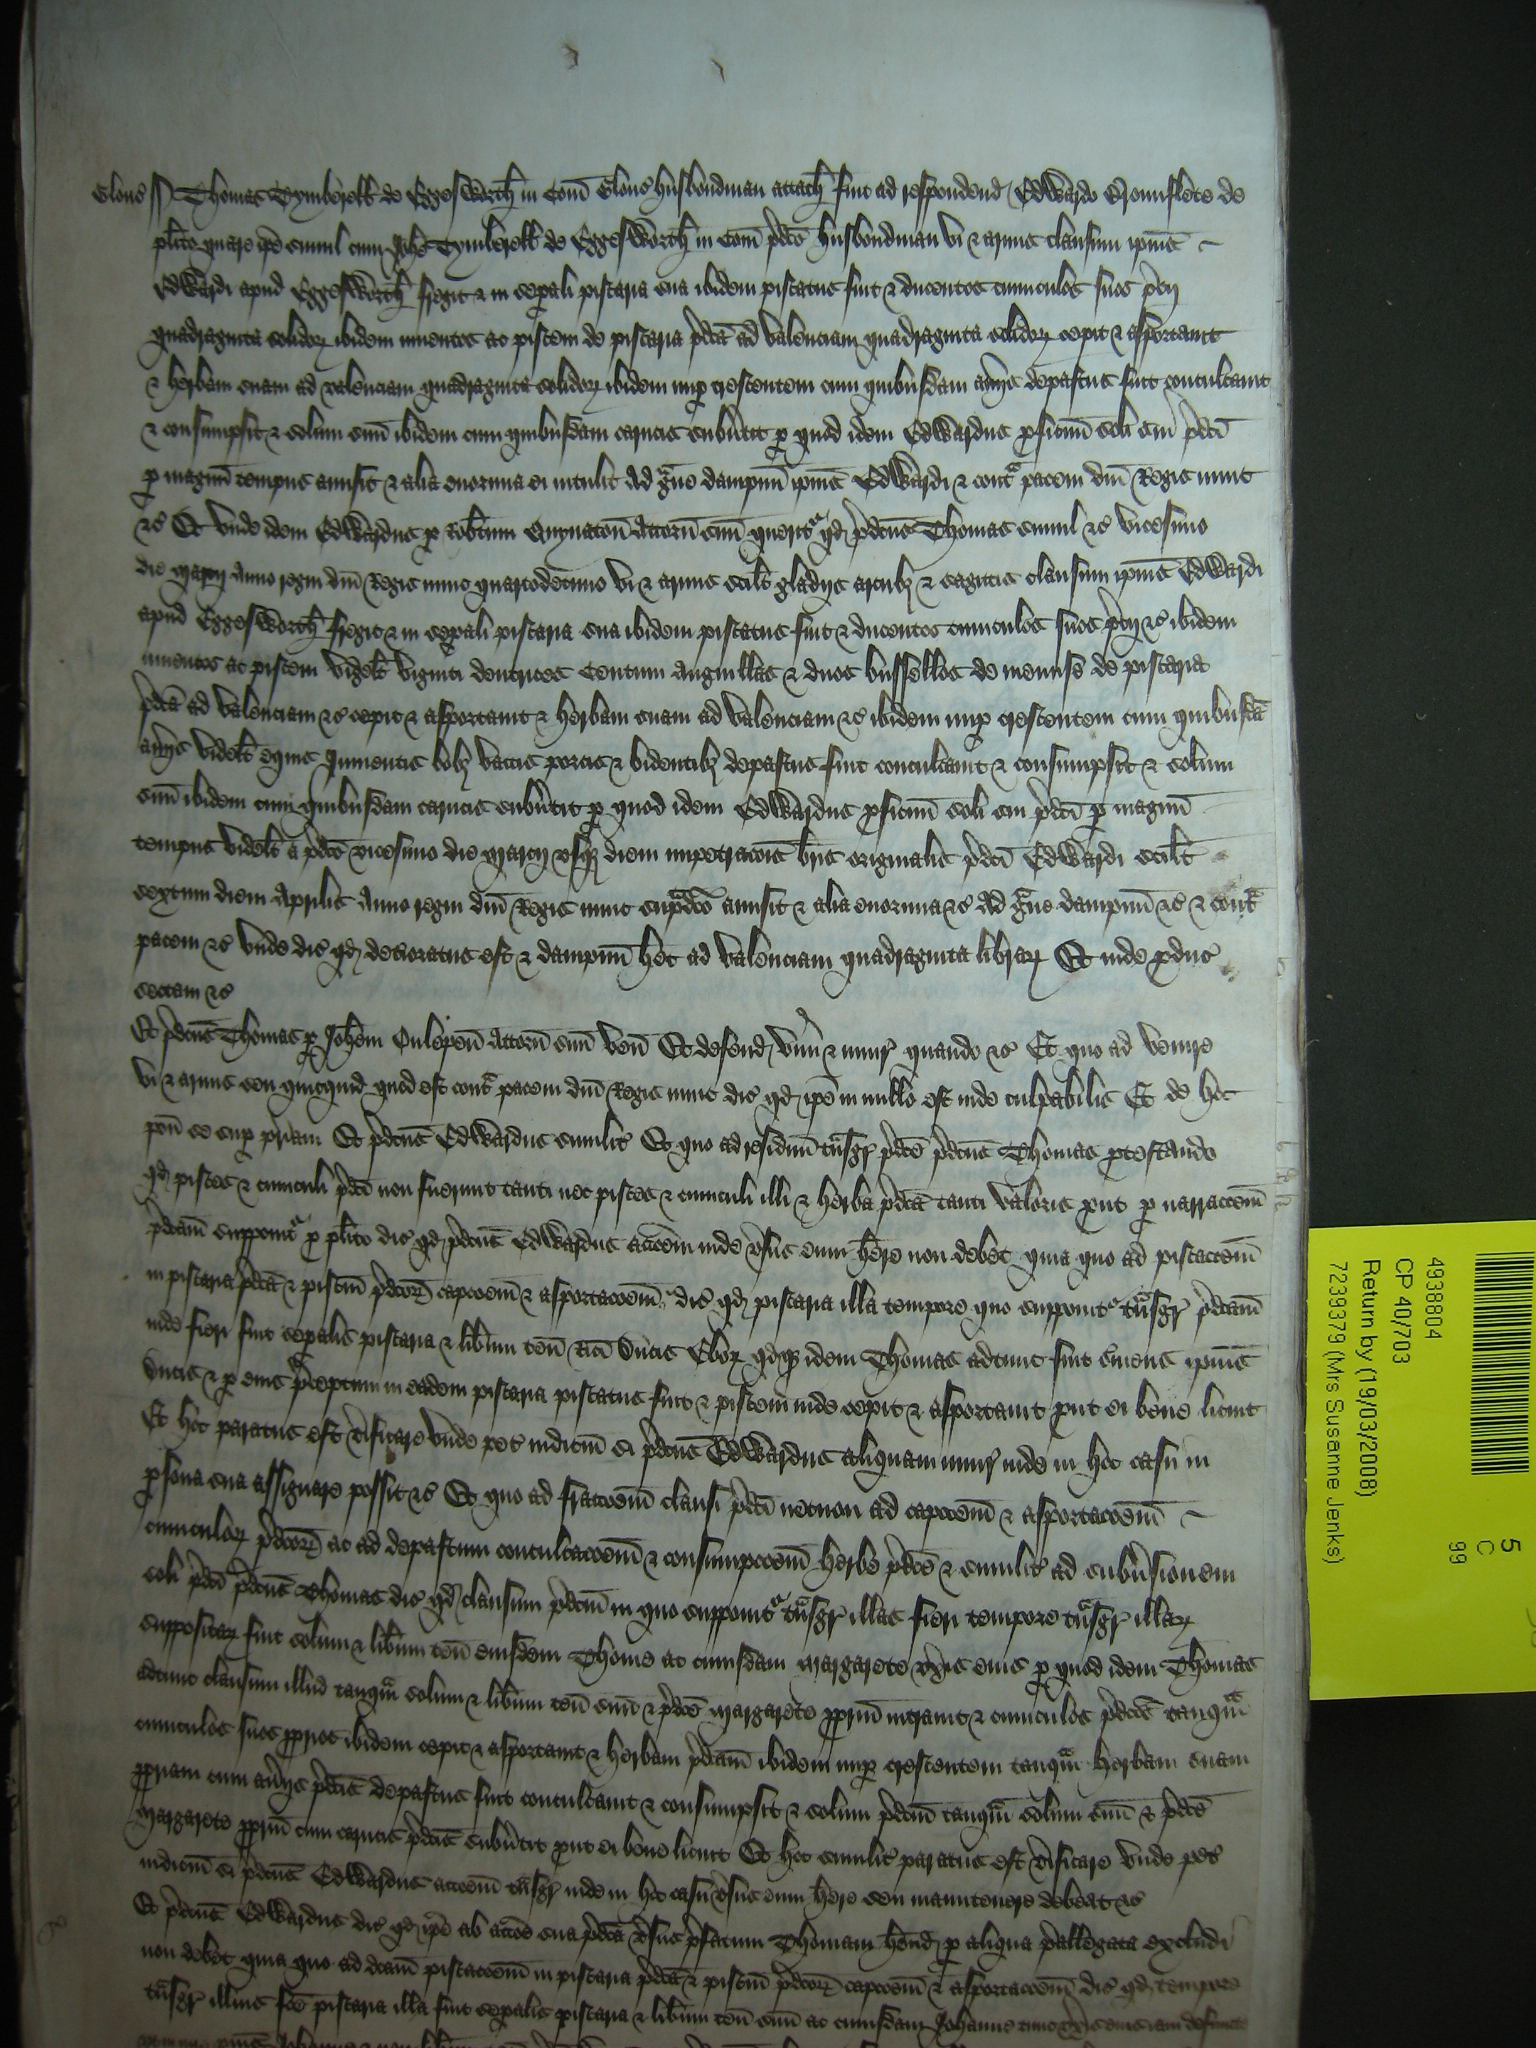 Glouc ss Thomas Tymberell de Eggesworth in Com Glouc husbondman attach fuit ad respondend Edwardo Bromflete de
plito quare ipe simul cum Johe Tymberell de Eggesworth in Com pdco husbondman vi & armis clausum ipius
Edwardi apud Eggesworth fregit & in sepali piscaria sua ibidem piscatus fuit & ducentos cuniculos suos pcij
quadraginta solidor ibidem inventos ac piscem de piscaria pdca ad valenciam quadraginta solidor cepit & asportavit
& herbam suam ad valenciam quadraginta solidor ibidem nup crescentem cum quibusdam aviis depastus fuit conculcavit
& consumpsit & solum suu ibidem cum quibusdam carucis subvtit p quod idem Edwardus pficuu soli sui pdci
p magnu tempus amisit & alia enormia ei intulit Ad gve dampnu ipius Edwardi & cont pacem dni Regis nunc
&c Et unde idem Edwardus p Robtum Attorn suu querit qd pdcus Thomas simul &c vicesimo
die Marcij Anno regni dni Regis nunc quartodecimo vi & armis scilt gladijs arcub & sagittis clausum ipius Edwardi
apud Eggesworth fregit & in sepali piscaria sua ibidem piscatus fuit & ducentos cuniculos suos pcij &c ibidem
inventos ac piscem videlt viginti dentrices Centum Anguillas & duos bussellos de menuse de piscaria
pdca ad valenciam &c cepit & asportavit & herbam suam ad valenciam &c ibidem nup crescentem cum quibusda
aviis videlt equis Jumentis bob vaccis porcis & bidentib depastus fuit conculcavit & consumpsit & solum
suu ibidem cum quibusdam carucis subvtit p quod idem Edwardus pficuu soli sui pdci p magnu
tempus videlt a pdco vicesimo die Marcij usq diem impetracois bris originalis pdci Edwardi scilt
sextum diem Aprilis Anno regni dni Regis nunc supdco amisit & alia enormia &c Ad gve dampnu &c & cont
pacem &c unde dic qd deterioratus est & dampnu het ad valenciam quadraginta librar Et inde pduc
sectam &c
Et pdcus Thomas p Johem Culepen Attorn suu ven Et defend vim & iniur quando &c Et quo ad venire
vi & armis seu quicquid quod est cont pacem dni Regis nunc dic qd ipe in nullo est inde culpabilis Et de hoc
pon se sup priam Et pdcus Edwardus similit Et quo ad residuu tnsgr pdce pdcus Thomas ptestando
qd pisces & cuniculi pdci non fuerunt tanti nec pisces & cuniculi illi & herba pdca tanti valoris put p narracoem
pdcam supponit p plito dic qd pdcus Edwardus accoem inde vsus eum here non debet quia quo ad piscacoem
in piscaria pdca & pisciu pdcor capcoem & asportacoem dic qd piscaria illa tempore quo supponit tnsgr pdcam
inde fieri fuit sepalis piscaria & libum ten Rici Ducis Ebor qdq idem Thomas adtunc fuit sviens ipius
Ducis & p eius pceptum in eadem piscaria piscatus fuit & piscem inde cepit & asportavit put ei bene licuit
Et hoc paratus est vificare unde pet iudiciu si pdcus Edwardus aliquam iniur inde in hoc casu in
psona sua assignare possit &c Et quo ad fraccoem clausi pdci necnon ad capcoem & asportacoem
cuniculor pdcor ac ad depastum conculcacoem & consumpcoem herbe pdce & similit ad subvsionem
soli pdci pdcus Thomas dic qd clausum pdcum in quo supponit tnsgr illas fieri tempore tnsgr illar
suppositar fuit solum & libum ten eiusdem Thome ac cuiusdam Margarete uxis eius p quod idem Thomas
adtunc clausum illud tanqm solum & libum ten suu & pdce Margarete ppriu intravit & cuniculos pdcos tanqm
cuniculos suos pprios ibidem cepit & asportavit & herbam pdcam ibidem nup crescentem tanqm herbam suam
ppriam cum aviis pdcis depastus fuit conculcavit & consumpsit & solum pdcum tanqm solum suu & pdce
Margarete ppriu cum carucis pdcis subvtit put ei bene licuit Et hoc similit paratus est vificare unde pet
iudiciu si pdcus Edwardus accoem tnsgr inde in hoc casu vsus eum here seu manutenere debeat &c
Et pdcus Edwardus dic qd ipe ab accoe sua pdca vsus pfatum Thomam hend p aliqua pallegata excludi
non debet quia quo ad dcam piscacoem in piscaria pdca & pisciu pdcor capcoem & asportacoem dic qd tempore
tnsgr illius fce piscaria illa fuit sepalis piscaria & libum ten suu ac cuiusdam Johanne nunc uxis eius iam defuncte
49388804
CP 40/703
Return by (19/03/2008)
7239379 (Mrs Susanne Jenks)
5
C
99